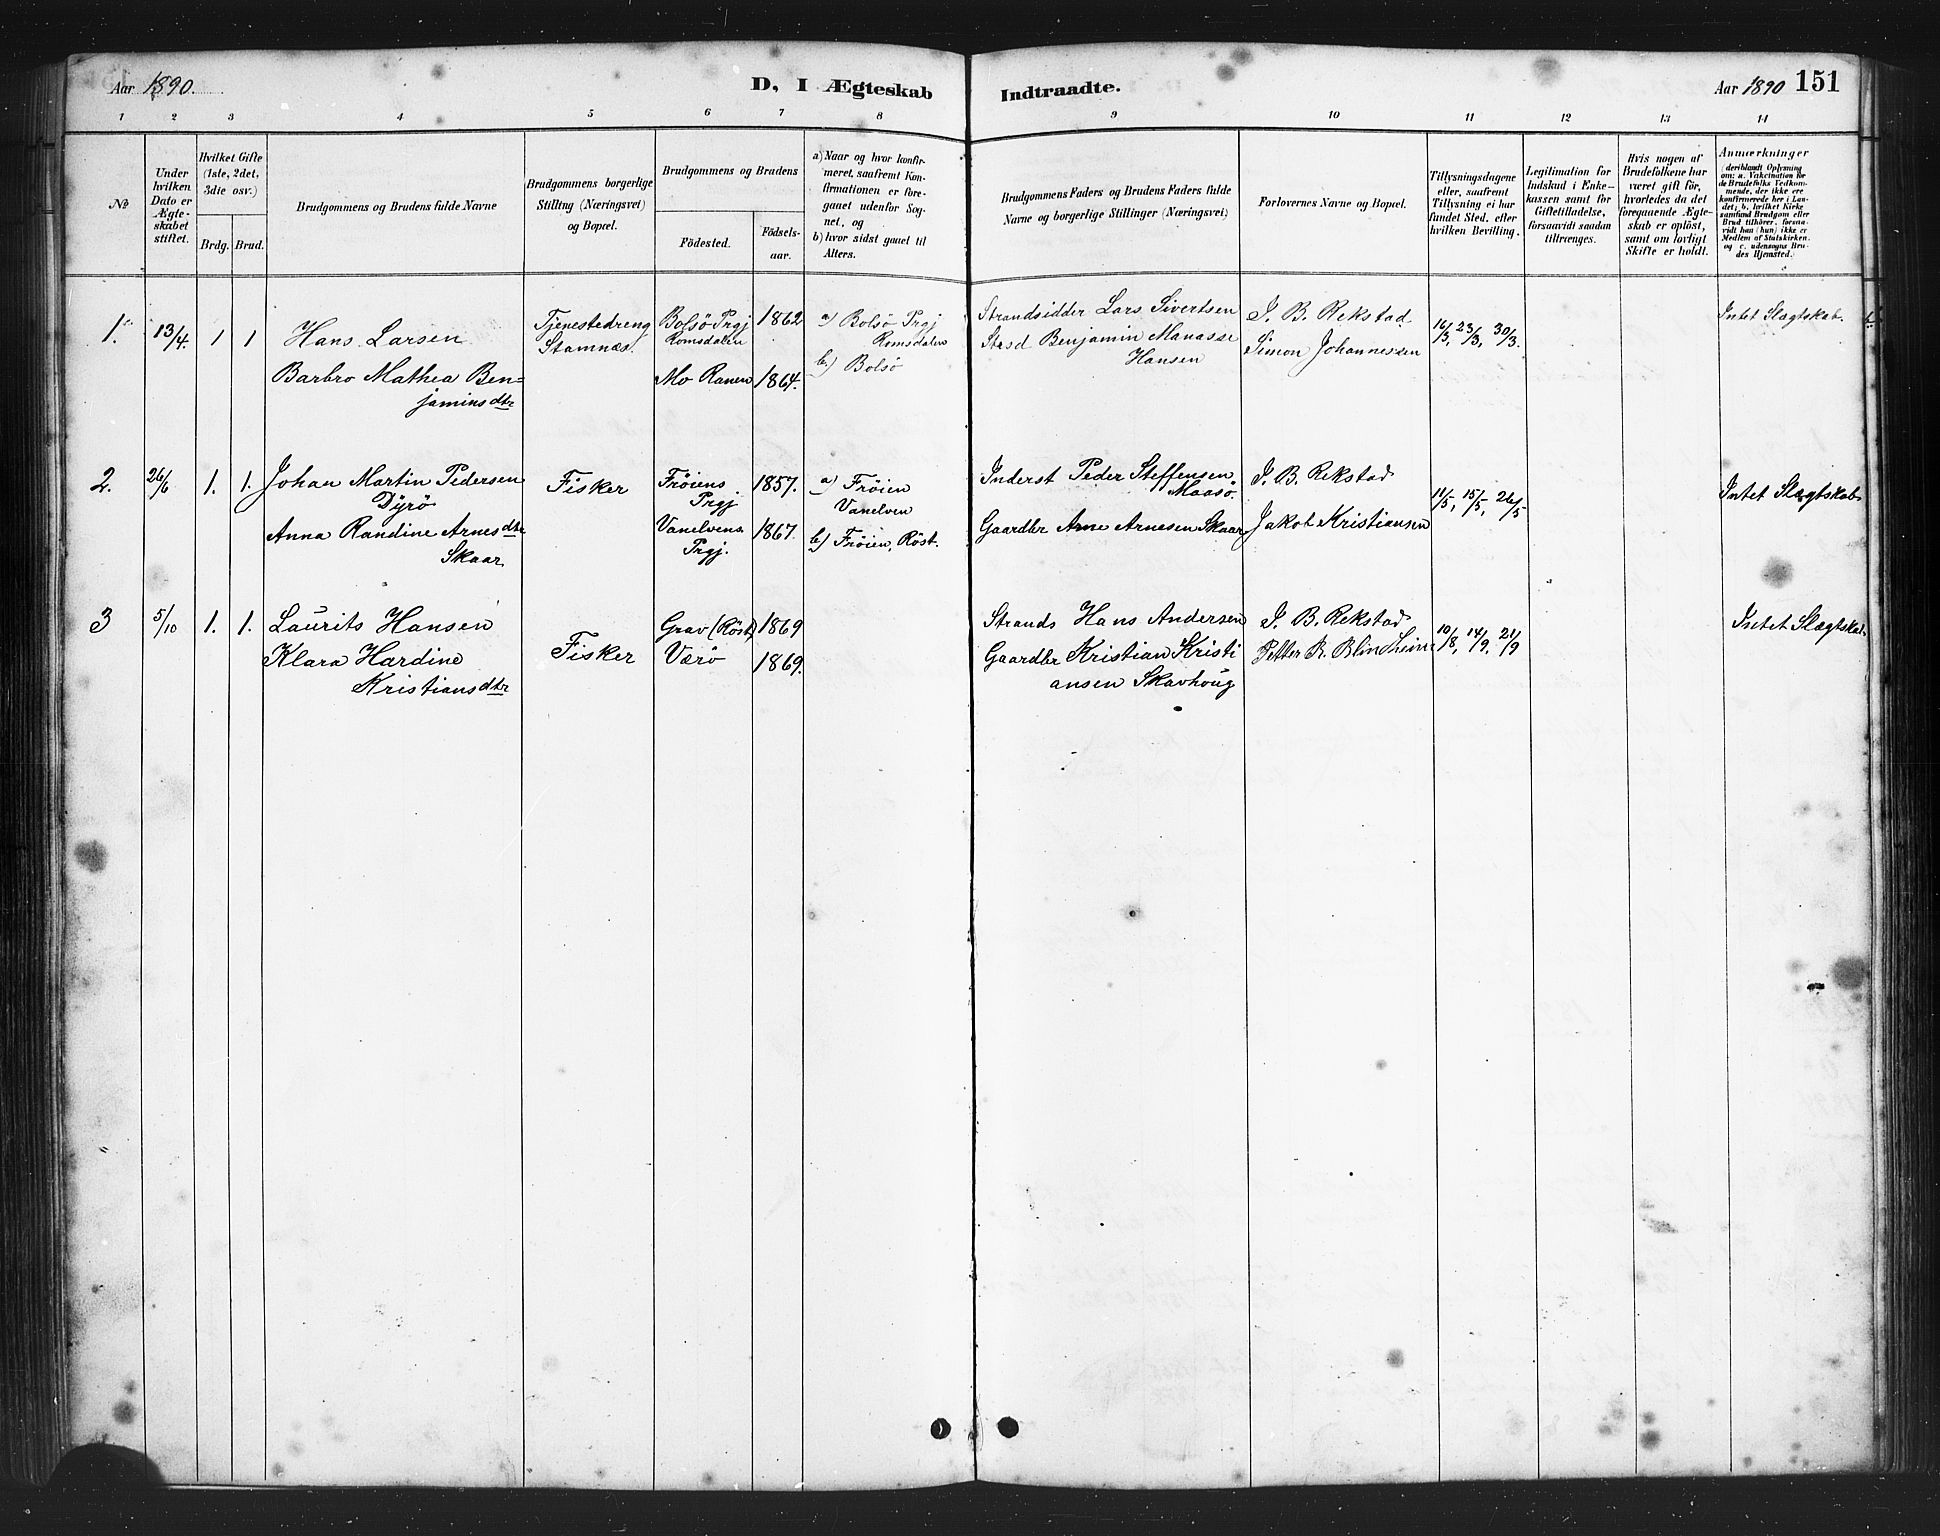 Aar 1890.
D, I Ægteskab
Indtraadte.
Aar 1890 151
1 2 3 4 5 6 7 8 9 10 11 12 13 14
No
Under hvilken Dato er Ægte-skabet stiftet.
Hvilket Gifte (1ste, 2det, 3die osv.)
Brdg. Brud.
Brudgommens og Brudens fulde Navne
Brudgommens borgerlige Stilling (Næringsvei) og Bopæl.
Brudgommens og Brudens
Fødested.
Fødsels-aar.
a) Naar og hvor konfir-meret, saafremt Kon-firmationen er fore-gaaet udenfor Sog-net, og
b) hvor sidst gaaet til Alters.
Brudgommens Faders og Brudens Faders fulde Navne og borgerlige Stillinger (Næringsvei)
Forlovernes Navne og Bopæl.
Tillysningsdagene eller, saafremt Tillysning ei har fundet Sted, efter hvilken Bevilling.
Legitimation for Indskud i Enke-kassen samt for Giftetilladelse, forsaavidt saadan tiltrænges.
Hvis nogen af Brudefolkene har været gift før, hvorledes da det foregaaende Ægte-skab er opløst, samt om lovligt Skifte er holdt.
Anmærkninger (deriblandt Oplysning om: a. Vakcination for de Brudefolks Vedkom-mende, der ikke ere konfirmerede her i Lan-det; b. hvilket Kirke samfund Brudgom eller Brud tilhører, forsaa-vidt han (hun) ikke er Medlem af Statskirken. og c. udensogns Bru-des Hjemsted.)
1. 13/4. 1 1 Hans Larsen
Barbro Mathea Ben=
jaminsdtr
Tjenestedreng
Stamnæs.
Bolsö Prgj
Romsdalen
1862
Mo Ranen 1864.
a) Bolsö Prgj
Romsdalen
b) Bolsö
Strandsidder Lars Sivertsen
Strsd Benjamin Manasse
Hansen
J. B. Rekstad
Simon Johannessen
16/3, 23/3, 30/3.
Intet Slægtskab.
2. 26/6 1. 1. Johan Martin Pedersen
Dÿrö
Anna Randine Arnesdtr
Skaar
Fisker
Fröiens
Prgj
1857.
Vanelvens
Prgj.
1867.
a) Fröien
Vanelven
b) Fröien, Röst.
Inderst Peder Steffensen
Maasö.
Gaardbr Arne Arnesen Skaar
J. B. Rekstad
Jakob Kristiansen
11/5, 15/5, 26/5
Intet Slægtskab
3 5/10 1. 1. Laurits Hansen
Klara Hardine
Kristiansdtr
Fisker
Grav (Röst) 1869
Værö 1869.
Strands Hans Andersen
Gaardbr Kristian Kristi
ansen Skavhoug
J. B. Rekstad
Petter R. Blindheim
10/8, 14/9, 21/9
Intet Slægtskab